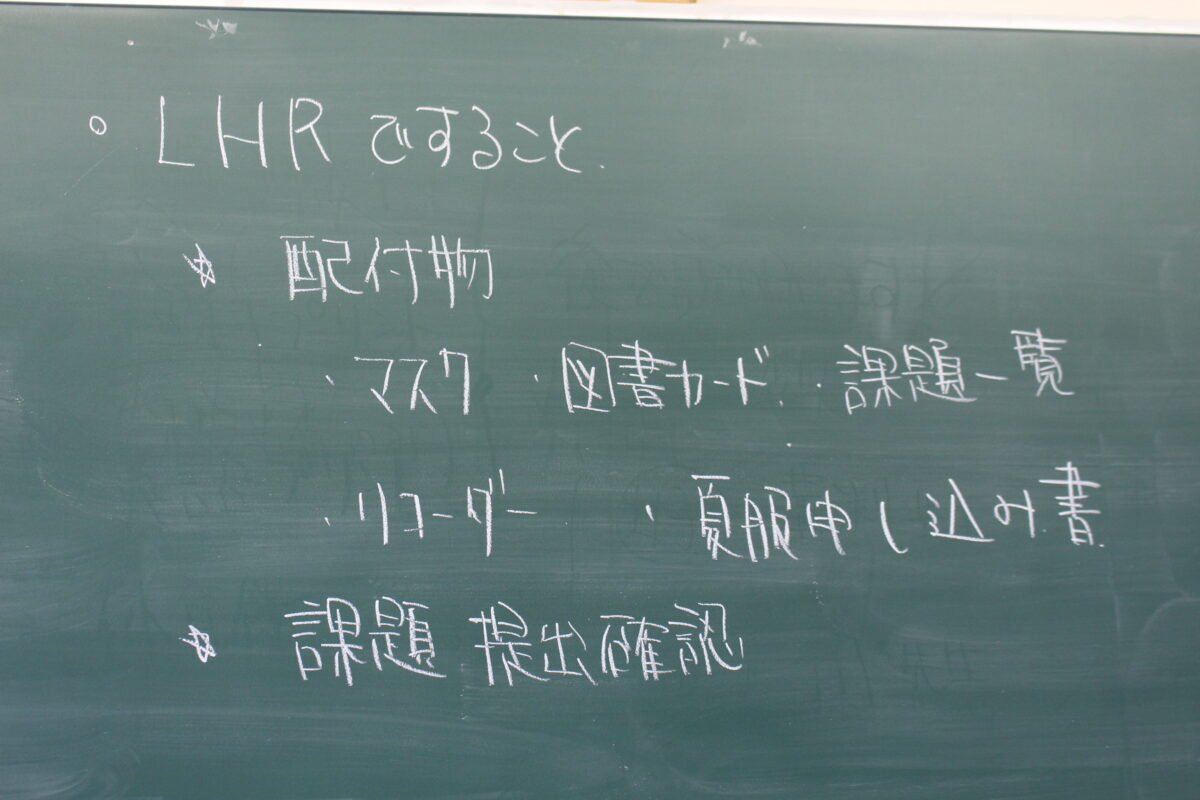 ○ LHRですること.
☆ 配付物
・マスク ・図書カード. ・課題一覧
・リコーダー ・夏服申し込み書.
☆ 課題 提出確認